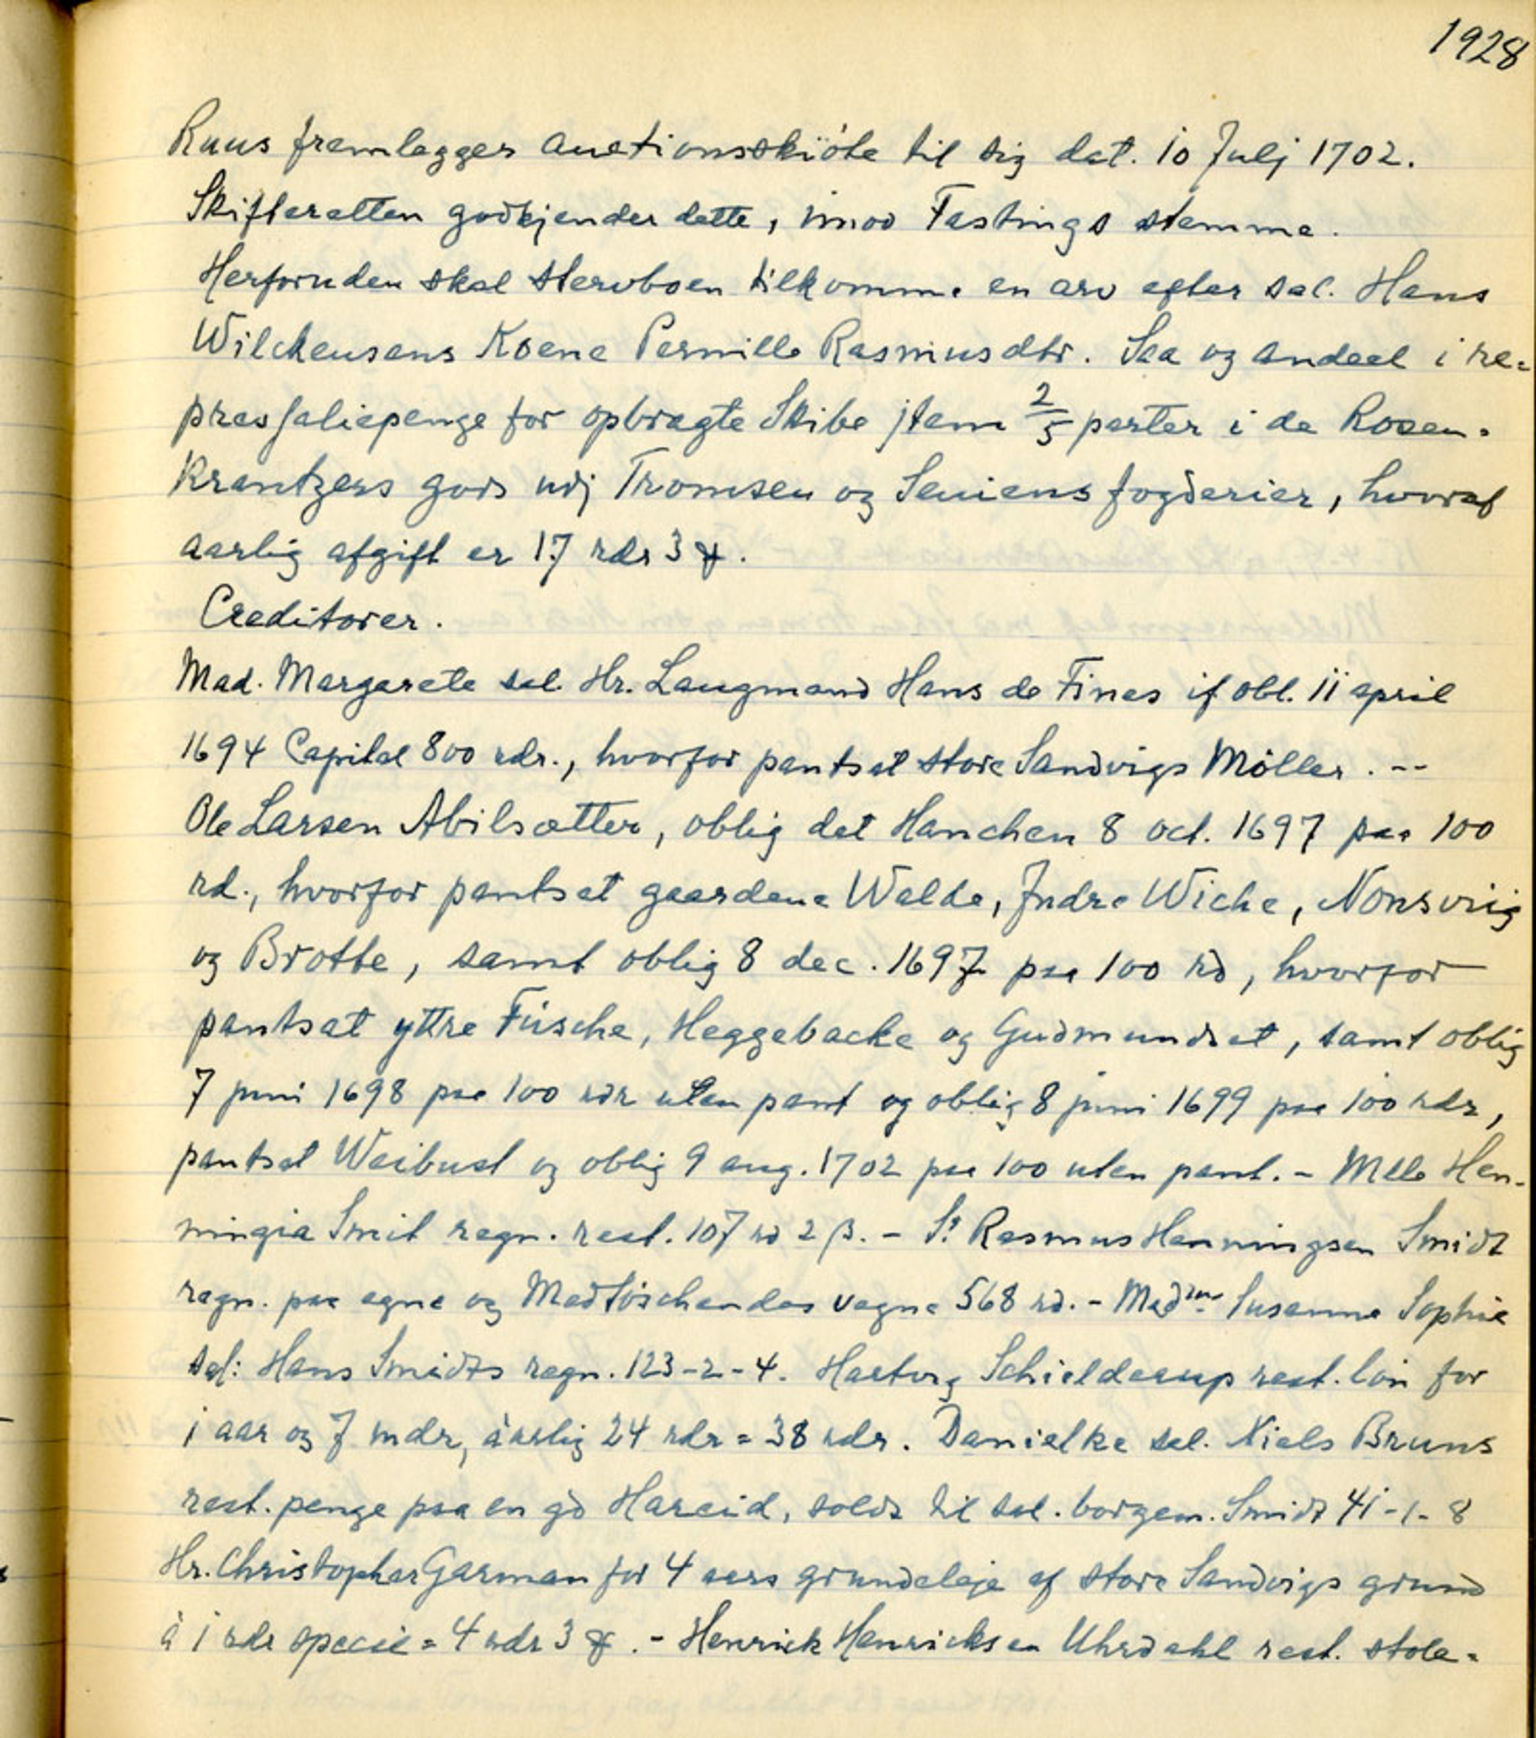 1928
Ruus fremlegger auctionsskiöte til sig dat. 10 Julj 1702.
Skifteretten godkjender dette, imod Fastings stemme.
Herforuden skal stervboen tilkomme en arv efter sal. Hans
Wilckensens Koene Pernille Rasmusdtr. Saa og andeel i re=
pressaliepenge for opbragte Skibe jtem 2/5 parter i de Rosen=
krantzers gods udj Tromsen og Seniens fogderier, hvoraf
aarlig afgift er 17 rdr 3 ⅋.
Creditorer.
Mad. Margarete sal. Hr. Laugmand Hans de Fines if obl. 11 april
1694 Capital 800 rdr., hvorfor pantsat store Sandvigs Möller. --
Ole Larsen Abilsætter, oblig dat Hanchen 8 oct. 1697 paa 100
rd., hvorfor pantsat gaardene Walde, Jndre Wicke, Nonsviig
og Brotte, samt oblig 8 dec. 1697 paa 100 rd, hvorfor
pantsat yttre Füsche, Heggebacke og Gudmundset, samt oblig
7 juni 1698 paa 100 rdr uten pant og oblig 8 juni 1699 paa 100 rdr,
pantsat Weibust og oblig 9 aug. 1702 paa 100 uten pant. - Mlle Hen-
ningia Smit regn. rest. 107 rd 2 β. - Sr Rasmus Henningsen Smidt
regn. paa egne og Medtöschendes vegne 568 rd. - Madme Susanna Sophie
sal: Hans Smidts regn. 123-2-4. Hartvig Schielderup rest. lön for
1 aar og 7 mdr, aarlig 24 rdr = 38 rdr. Danielke sal. Niels Bruns
rest. penge paa en gd Hareid, solds til sal. borgem. Smidt 41-1-8
Hr. Christopher Garman for 4 aars grundeleje af store Sandvigs grund
à 1 rdr specie = 4 rdr 3 ⅋. - Henrick Henricksen Uhrdahl rest. stole=